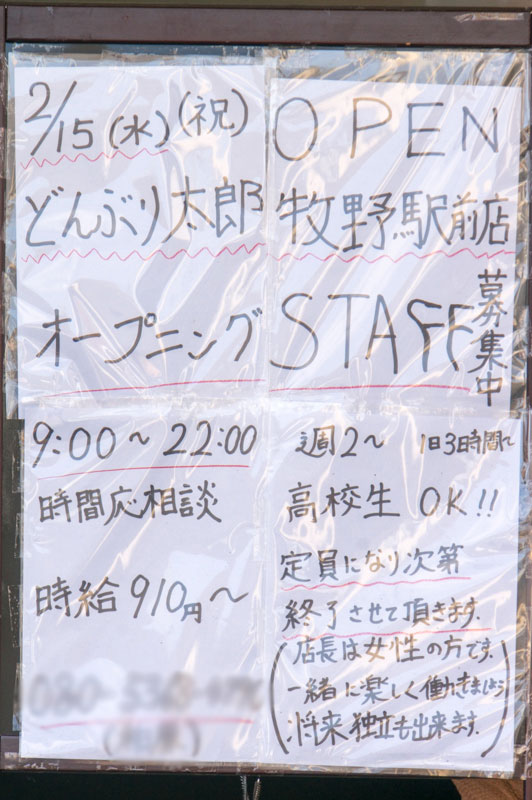 2/15(水)(祝) OPEN
どんぶり太郎 牧野駅前店
オープニング STAFF 募集中
9:00～22:00
時間応相談
時給910円～
週2～ 1日3時間～
高校生 OK!!
定員になり次第
終了させて頂きます.
(店長は女性の方です.
一緒に楽しく働きましょう
将来独立も出来ます.)